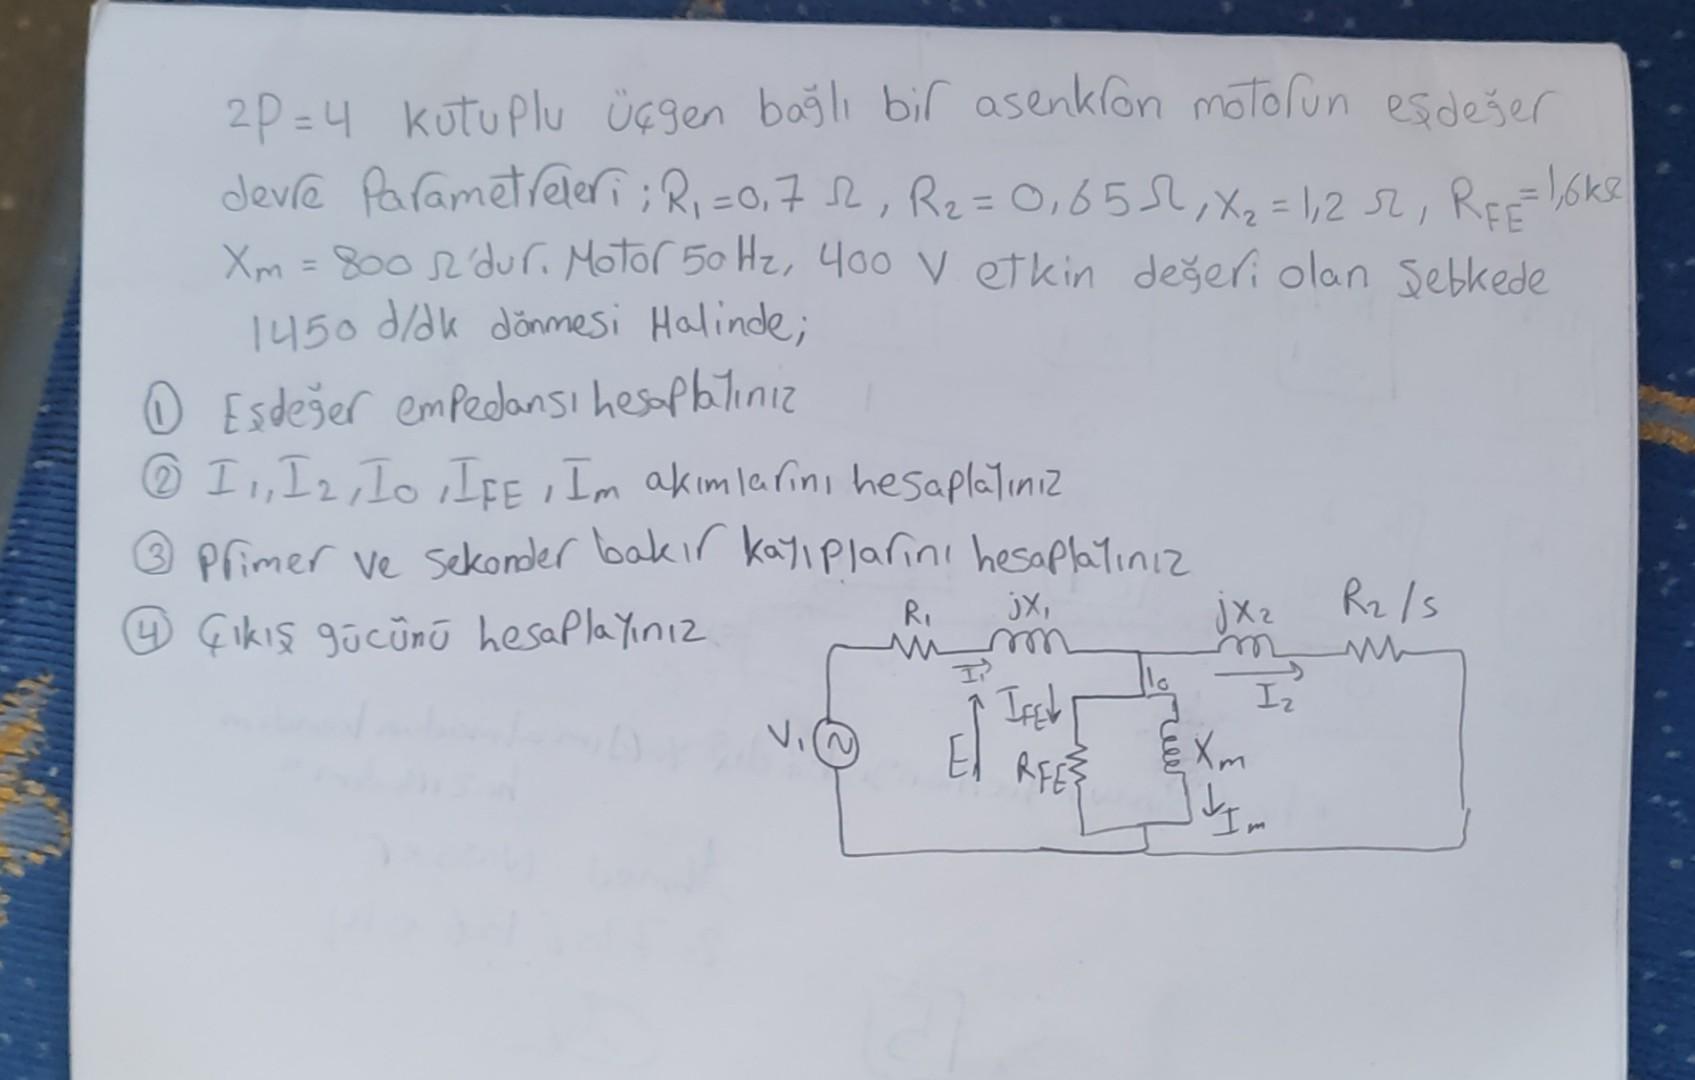 2P=4 kutuplu üçgen bağlı bir asenkron motorun eşdeğer
devre Parametreleri; R₁=0,7 Ω, R₂=0,65Ω, X₂=1,2 Ω, R_FE=1,6kΩ
Xm = 800 Ω'dur. Motor 50 Hz, 400 V etkin değeri olan Şebkede
1450 d/dk dönmesi Halinde;
① Eşdeğer empedansı hesaplayınız
② I₁, I₂, I₀, I_FE, Im akımlarını hesaplayınız
③ Primer ve sekonder bakır kayıplarını hesaplayınız
④ Çıkış gücünü hesaplayınız
R₁ jX₁ jX₂ R₂/s
I₁ I_FE I₀ I₂
V₁ E R_FE Xm
Im